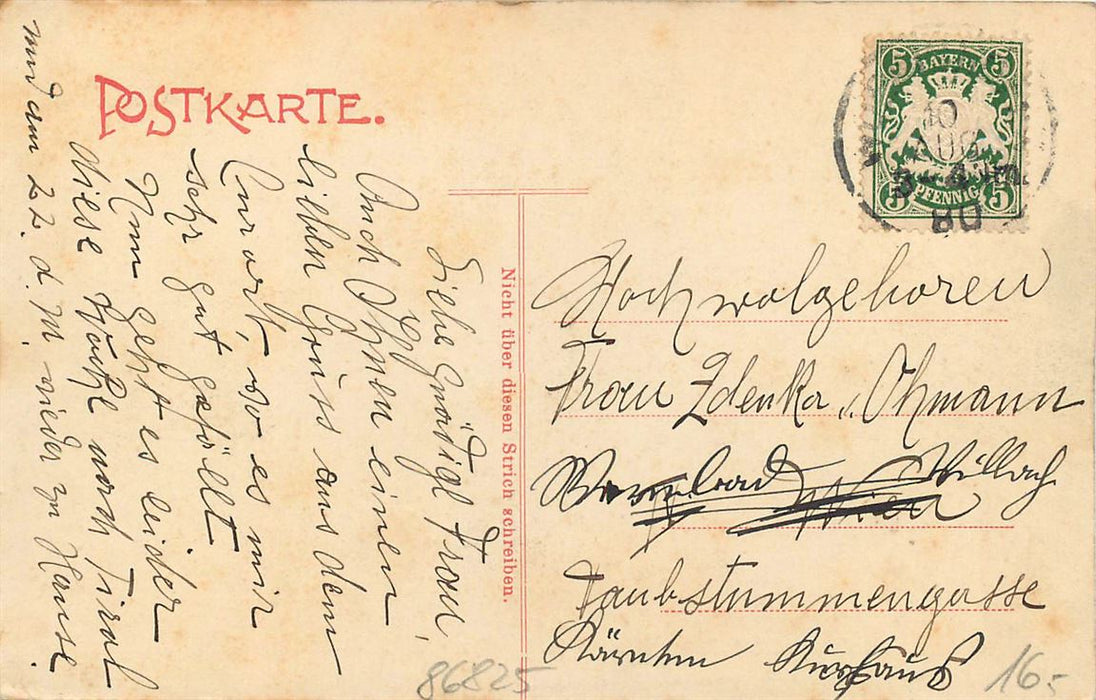 POSTKARTE.
Liebe Gnädige Frau,
Auch Ihnen einen
lieben Gruss aus dem
Curort, wo es mir
sehr gut gefällt.
Nun geht es leider
diese Woche nach Tirol
und am 22. d. M. wieder zu Hause.
Nicht über diesen Strich schreiben.
BAYERN
5 5
5 PFENNIG 5
10
AUG
3-4 Nm.
Hochwolgeboren
Frau Zdenka Ohmann
Warmbad Villach
Wien
Taubstummengasse
Kärnten Kurhaus
86825
16.-